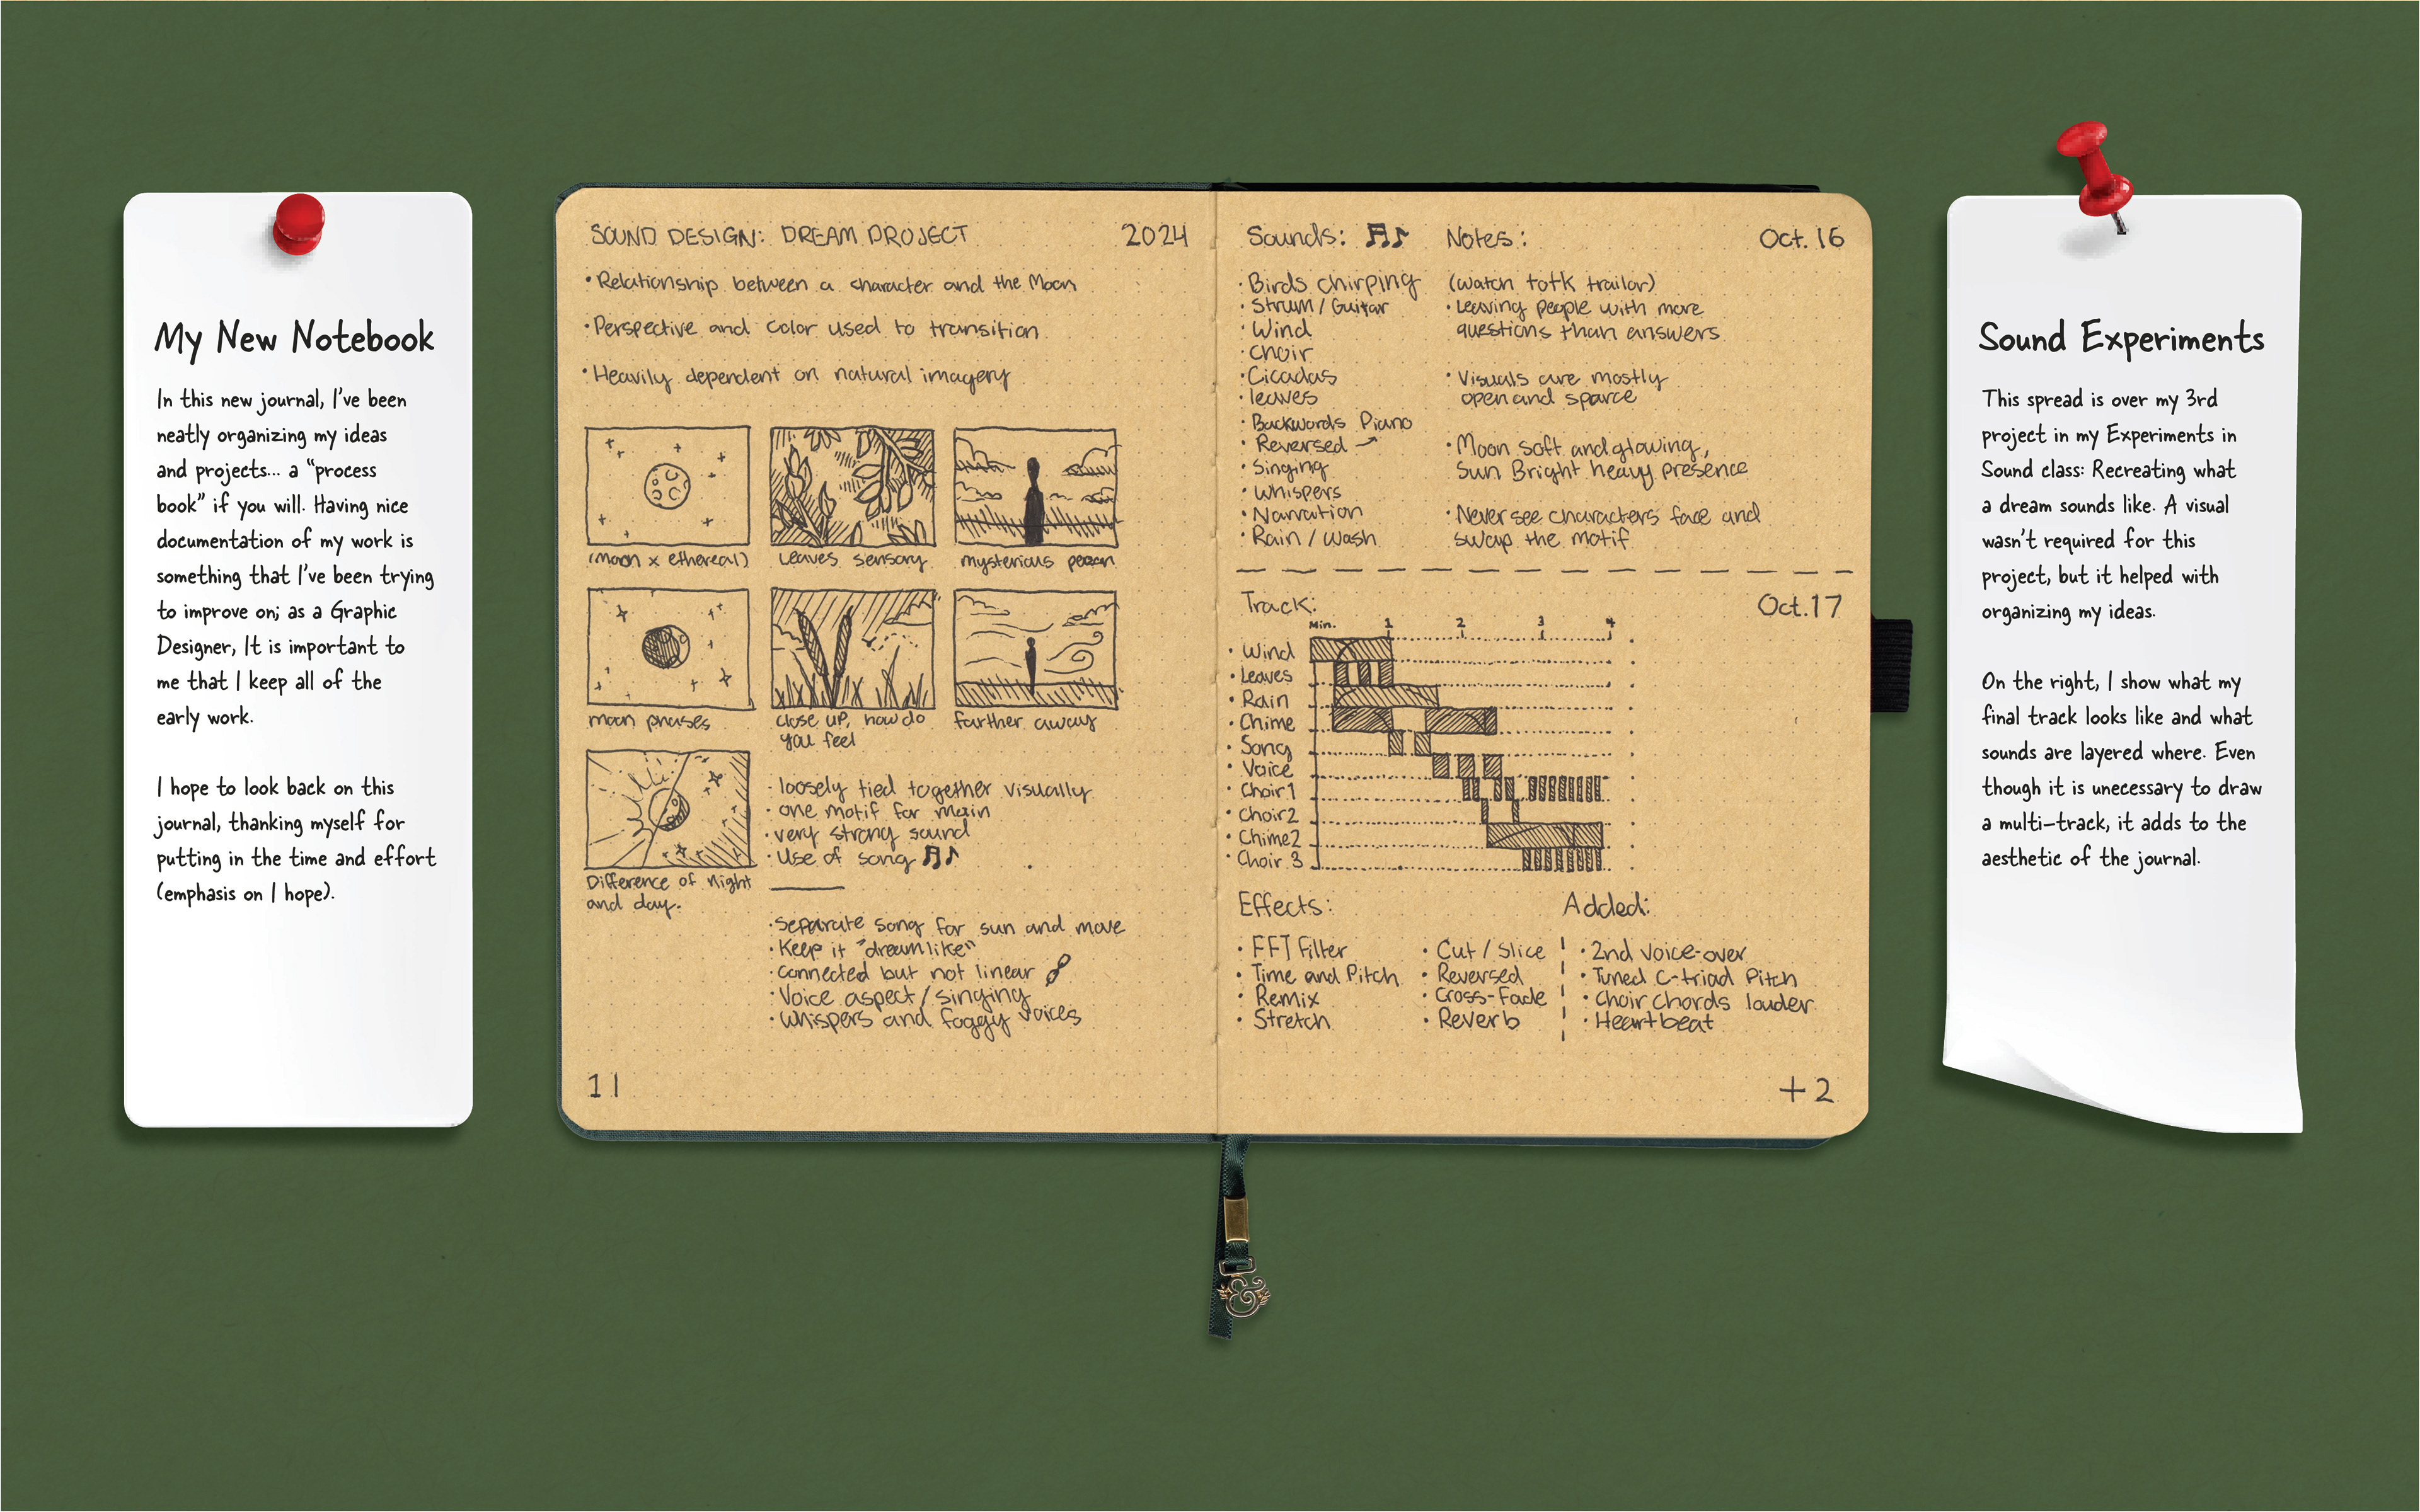 My New Notebook
In this new journal, I've been
neatly organizing my ideas
and projects... a "process
book" if you will. Having nice
documentation of my work is
something that I've been trying
to improve on; as a Graphic
Designer, It is important to
me that I keep all of the
early work.
I hope to look back on this
journal, thanking myself for
putting in the time and effort
(emphasis on I hope).
SOUND DESIGN: DREAM PROJECT 2024
• Relationship between a character and the Moon
• Perspective and color used to transition
• Heavily dependent on natural imagery
(moon x ethereal)
Leaves sensory
mysterious person
moon phases
close up, how do
you feel
farther away
Difference of night
and day.
• loosely tied together visually
• one motif for main
• very strong sound
• Use of song
• Separate song for sun and move
• Keep it "dreamlike"
• connected but not linear
• Voice aspect / singing
• Whispers and foggy voices
11
Sounds:
• Birds chirping
• Strum / Guitar
• Wind
• choir
• Cicadas
• leaves
• Backwords Piano
• Reversed
• Singing
• Whispers
• Narration
• Rain / Wash
Notes: Oct. 16
(watch totk trailor)
• Leaving people with more
questions than answers
• Visuals are mostly
open and sparce
• Moon soft and glowing,
Sun Bright heavy presence
• Never see characters face and
swap the motif
Track: Oct. 17
Min. 1 2 3 4
• Wind
• Leaves
• Rain
• Chime
• Song
• Voice
• Choir 1
• Choir 2
• Chime 2
• Choir 3
Effects:
• FFT Filter
• Time and Pitch
• Remix
• Stretch
• Cut / Slice
• Reversed
• Cross-Fade
• Reverb
Added:
• 2nd voice-over
• Tuned C-triad Pitch
• Choir Chords louder
• Heartbeat
+2
Sound Experiments
This spread is over my 3rd
project in my Experiments in
Sound class: Recreating what
a dream sounds like. A visual
wasn't required for this
project, but it helped with
organizing my ideas.
On the right, I show what my
final track looks like and what
sounds are layered where. Even
though it is unecessary to draw
a multi-track, it adds to the
aesthetic of the journal.